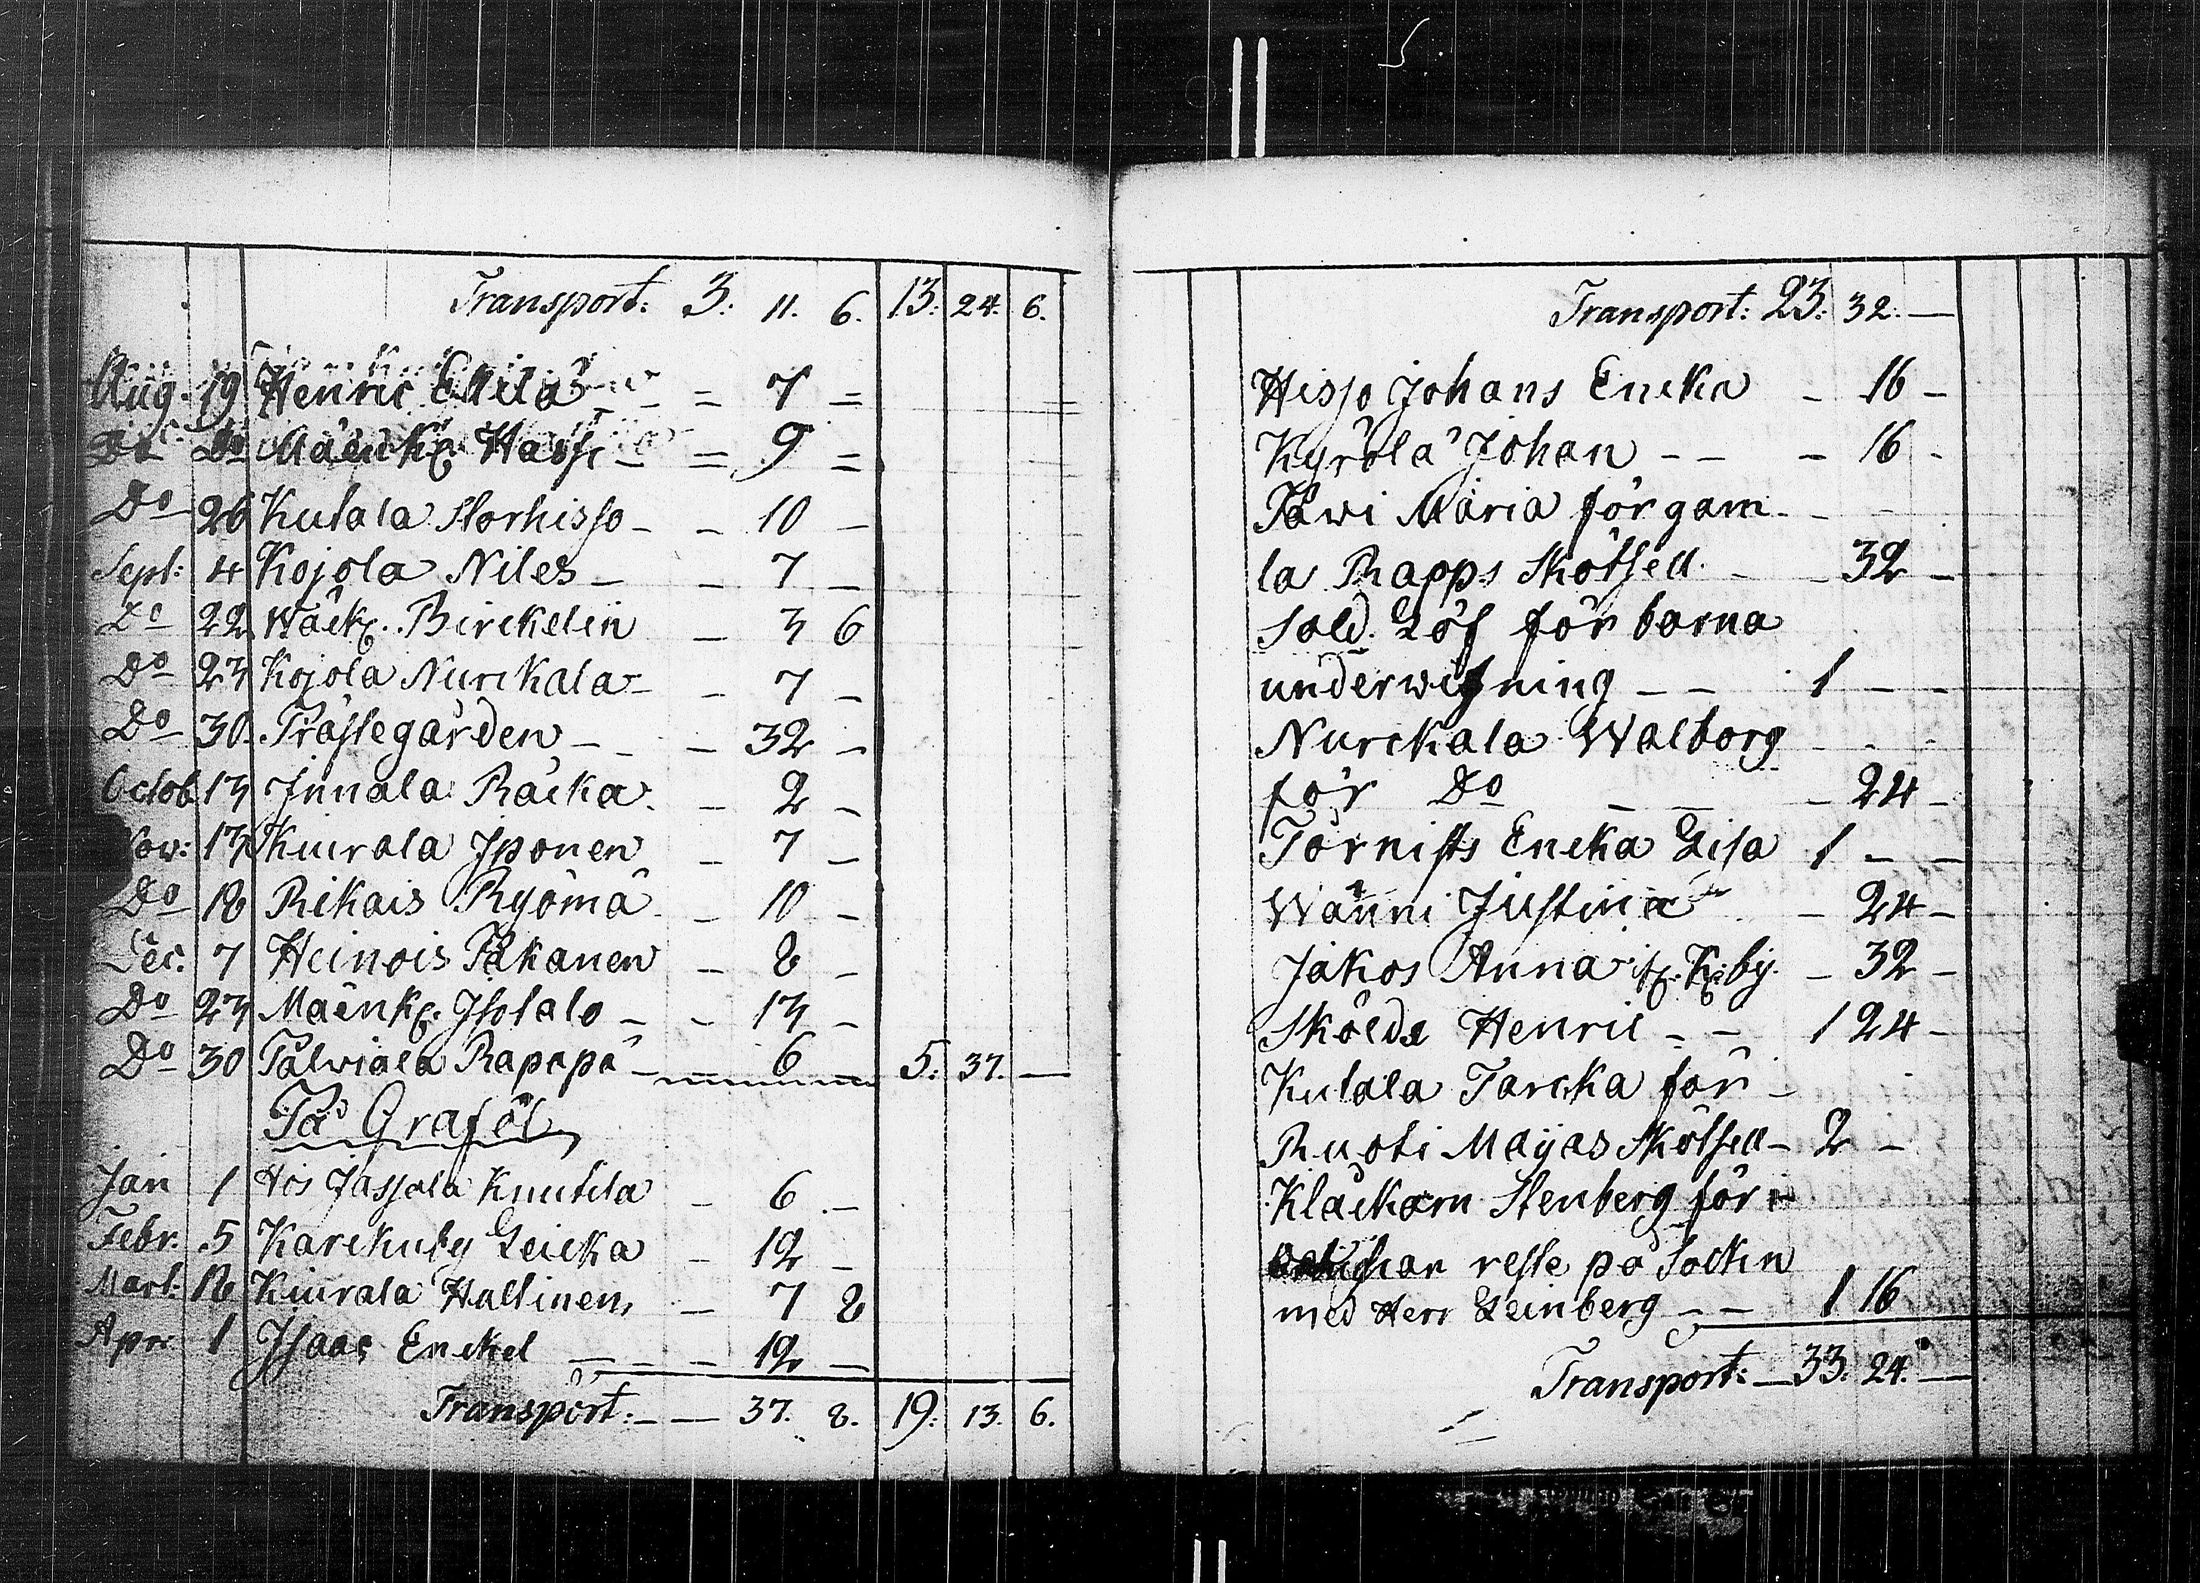 Transport: 3. 11. 6. 13. 24. 6.
Aug. 19 Henric = 7 =
Do Do = 9 =
Do 26 Kutala Storhisso - - 10 -
Sept: 4 Kojola Niles - - 7 -
Do 22 Birckelin - 3 6
Do 23 Kojola Nurckala - - 7 -
Do 30. Prästegården - - - 32 -
Octob. 13 Jnnala Räcka. - 2 -
Now: 13 Kuirala Jponen - 7 -
Do 18 Rikais Ryömä - 10 -
Dec. 7 Heinois Pakanen - 8 -
Do 23 Jsotalo - - 13 -
Do 30 Palwiala Rapapå - 6 5. 37. -
På Graföl
Jan 1 Hos Jassala Knutila - 6. -
Febr. 5 Karckuby Leicka - 12 -
Mart: 18 Kuirala Hallinen, - 7 8
Apr. 1 Jsaac Enckel - - - 12 -
Transport: - - 37. 8. 19: 13. 6.
Transport: 23. 32. -
Hisso Johans Encka - 16 -
Kyrölä Johan - - - 16 -
Påwi Maria för gam - - -
la Rapps Skötsell - - 32 -
Sold. Löf för barna
underwisning - - 1 - -
Nurckala Walborg - - -
för Do - - - 24 -
Törnists Encka Lisa 1 - -
Wänni Justina - 24 -
Jakos Anna by. - 32 -
Henric - - 1 24 -
Kutala Tarcka för -
Ruoti Mayas Skötsell - 2 -
Kläckarn Stenberg för
reste på Sockn
med Herr Leinberg - - 1 16
Transport: - 33. 24. -